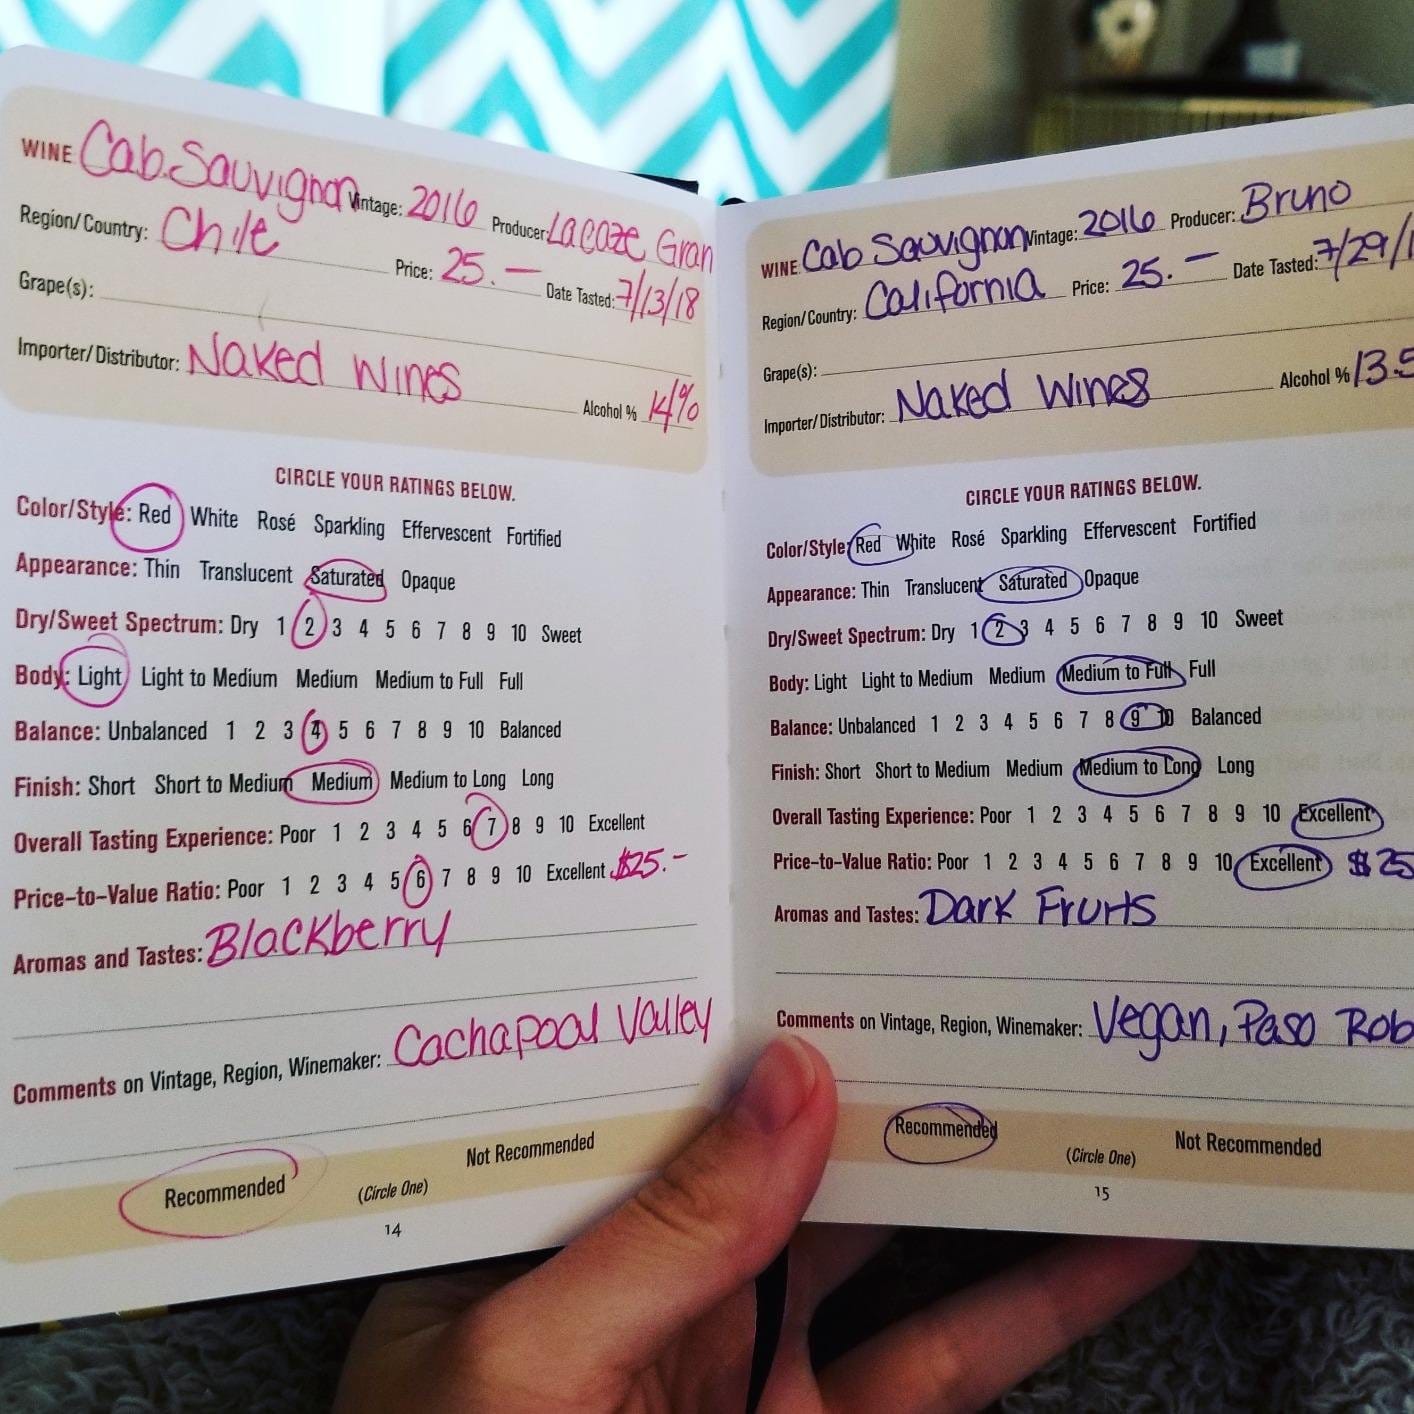 WINE: Cab. Sauvignon Vintage: 2016 Producer: Lacaze Gran
Region/Country: Chile Price: 25.— Date Tasted: 7/13/18
Grape(s):
Importer/Distributor: Naked Wines Alcohol % 14%
CIRCLE YOUR RATINGS BELOW.
Color/Style: Red White Rosé Sparkling Effervescent Fortified
Appearance: Thin Translucent Saturated Opaque
Dry/Sweet Spectrum: Dry 1 2 3 4 5 6 7 8 9 10 Sweet
Body: Light Light to Medium Medium Medium to Full Full
Balance: Unbalanced 1 2 3 4 5 6 7 8 9 10 Balanced
Finish: Short Short to Medium Medium Medium to Long Long
Overall Tasting Experience: Poor 1 2 3 4 5 6 7 8 9 10 Excellent
Price-to-Value Ratio: Poor 1 2 3 4 5 6 7 8 9 10 Excellent $25.-
Aromas and Tastes: Blackberry
Comments on Vintage, Region, Winemaker: Cachapoal Valley
Recommended (Circle One) Not Recommended
14
WINE: Cab Sauvignon Vintage: 2016 Producer: Bruno
Region/Country: California Price: 25.— Date Tasted: 7/29/1
Grape(s):
Importer/Distributor: Naked Wines Alcohol % 13.5
CIRCLE YOUR RATINGS BELOW.
Color/Style: Red White Rosé Sparkling Effervescent Fortified
Appearance: Thin Translucent Saturated Opaque
Dry/Sweet Spectrum: Dry 1 2 3 4 5 6 7 8 9 10 Sweet
Body: Light Light to Medium Medium Medium to Full Full
Balance: Unbalanced 1 2 3 4 5 6 7 8 9 10 Balanced
Finish: Short Short to Medium Medium Medium to Long Long
Overall Tasting Experience: Poor 1 2 3 4 5 6 7 8 9 10 Excellent
Price-to-Value Ratio: Poor 1 2 3 4 5 6 7 8 9 10 Excellent $25
Aromas and Tastes: Dark Fruits
Comments on Vintage, Region, Winemaker: Vegan, Paso Rob
Recommended (Circle One) Not Recommended
15